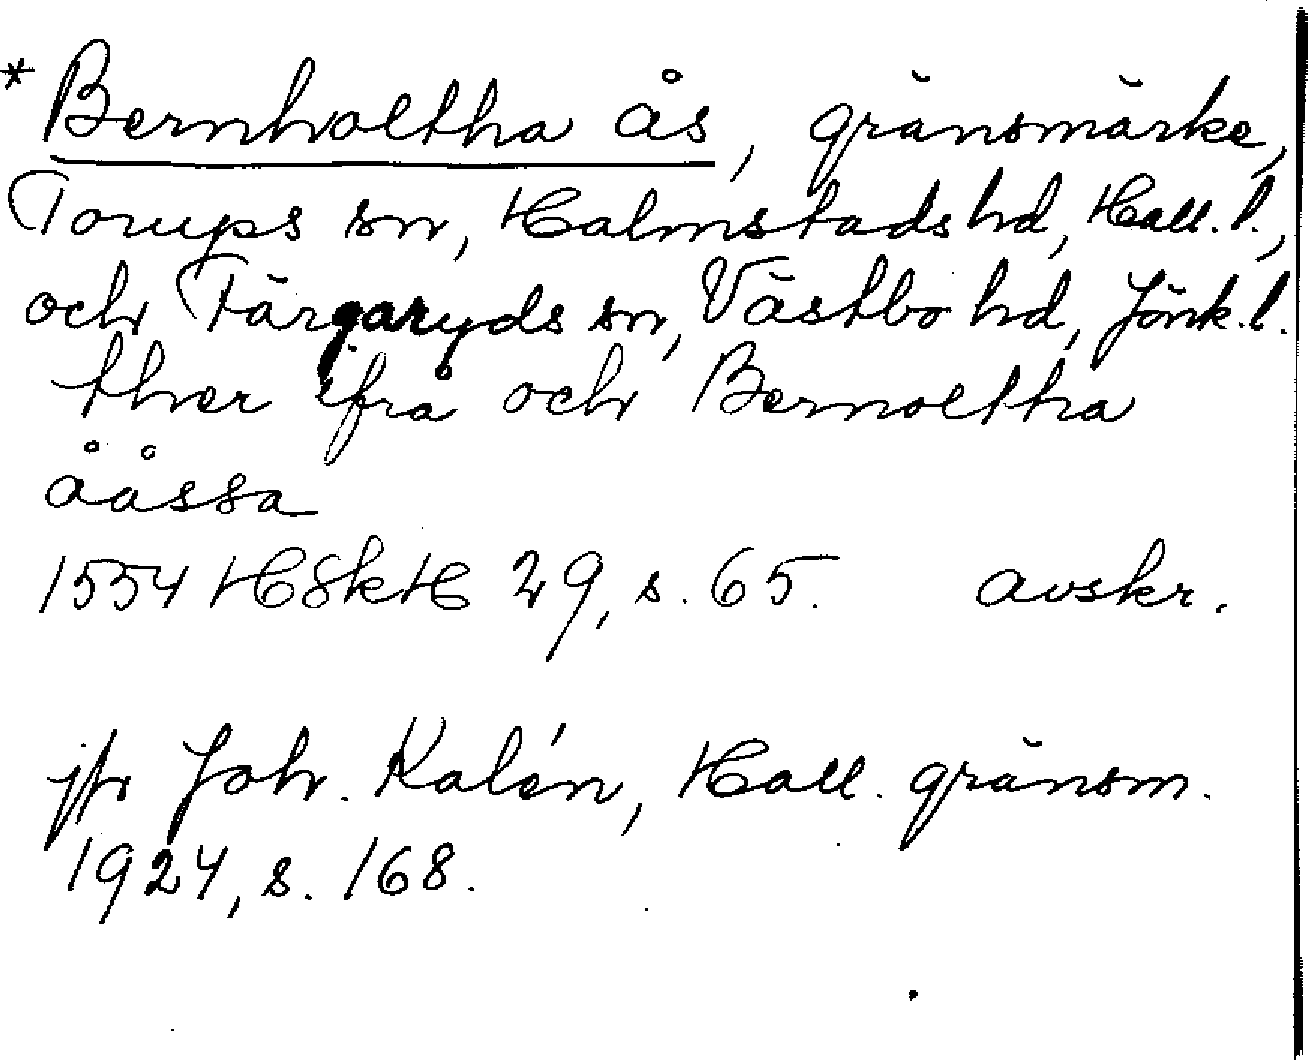 * Bernholtha ås, gränsmärke,
Torups sn, Halmstads hd, Hall. l.,
och Färgaryds sn, Västbo hd, Jönk. l.
ther ifrå och Bernoltha
ååssa
1554 HSkH 29, s. 65. avskr.
jfr Joh. Kalén, Hall. gränsm.
1924, s. 168.